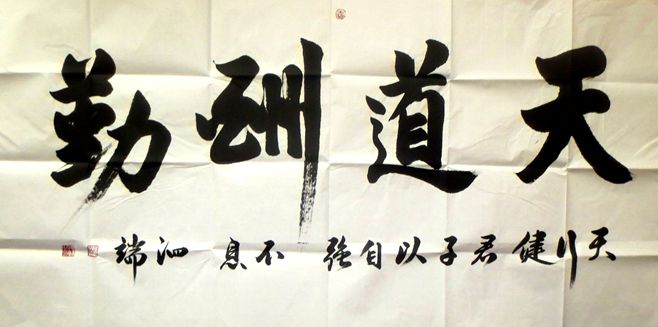 天道酬勤
天行健君子以自强不息 泗端